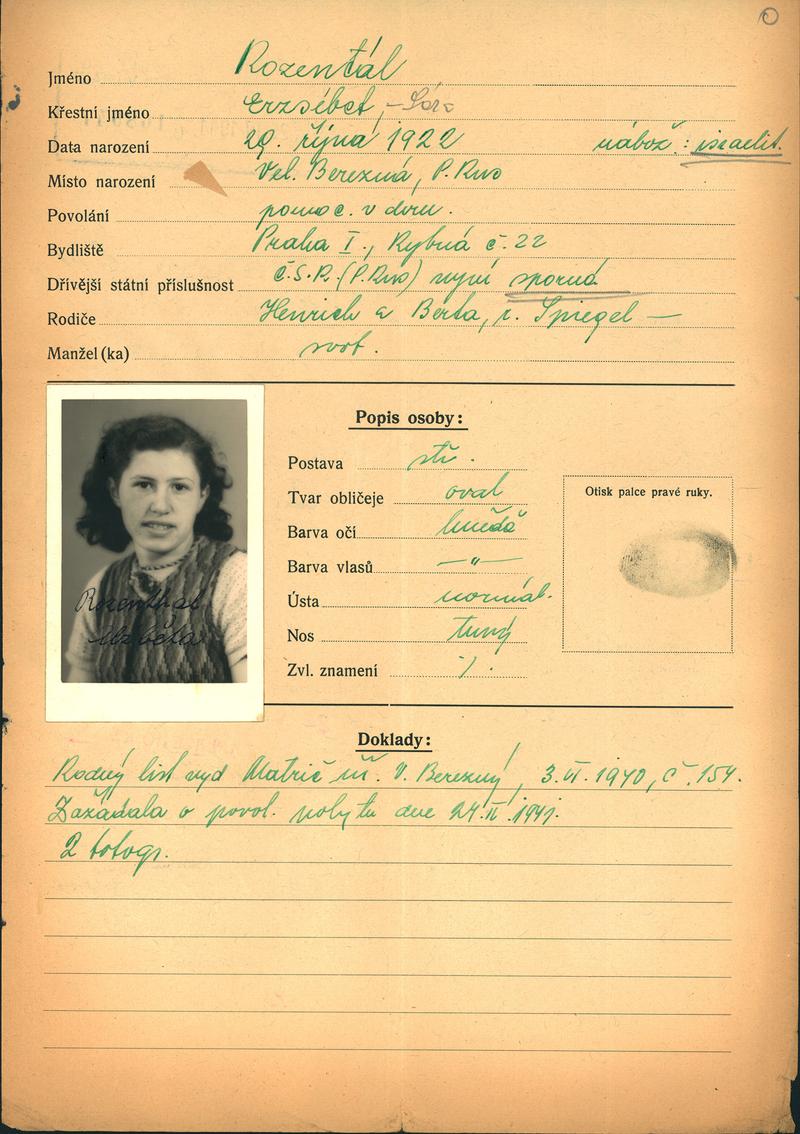 Jméno Rozentál
Křestní jméno Erzsébet, - Sára
Data narození 29. října 1922 nábož.: israelit.
Místo narození Vel. Berezná, P. Rus
Povolání pomoc. v dom.
Bydliště Praha I., Rybná č. 22
Dřívější státní příslušnost Č.S.R. (P. Rus) nyní sporná
Rodiče Henrich a Berta, r. Spiegel —
Manžel (ka) svob.
Popis osoby:
Postava stř.
Tvar obličeje oval
Barva očí hnědá
Barva vlasů —„—
Ústa normál.
Nos
Zvl. znamení ·/.
Otisk palce pravé ruky.
Rozenthal
Alzběta
Doklady:
Rodný list vyd Matrič úř. V. Berezný, 3.VI.1940, č. 154.
Zažádala o povol. pobytu dne 24.II.1941.
2 fotogr.